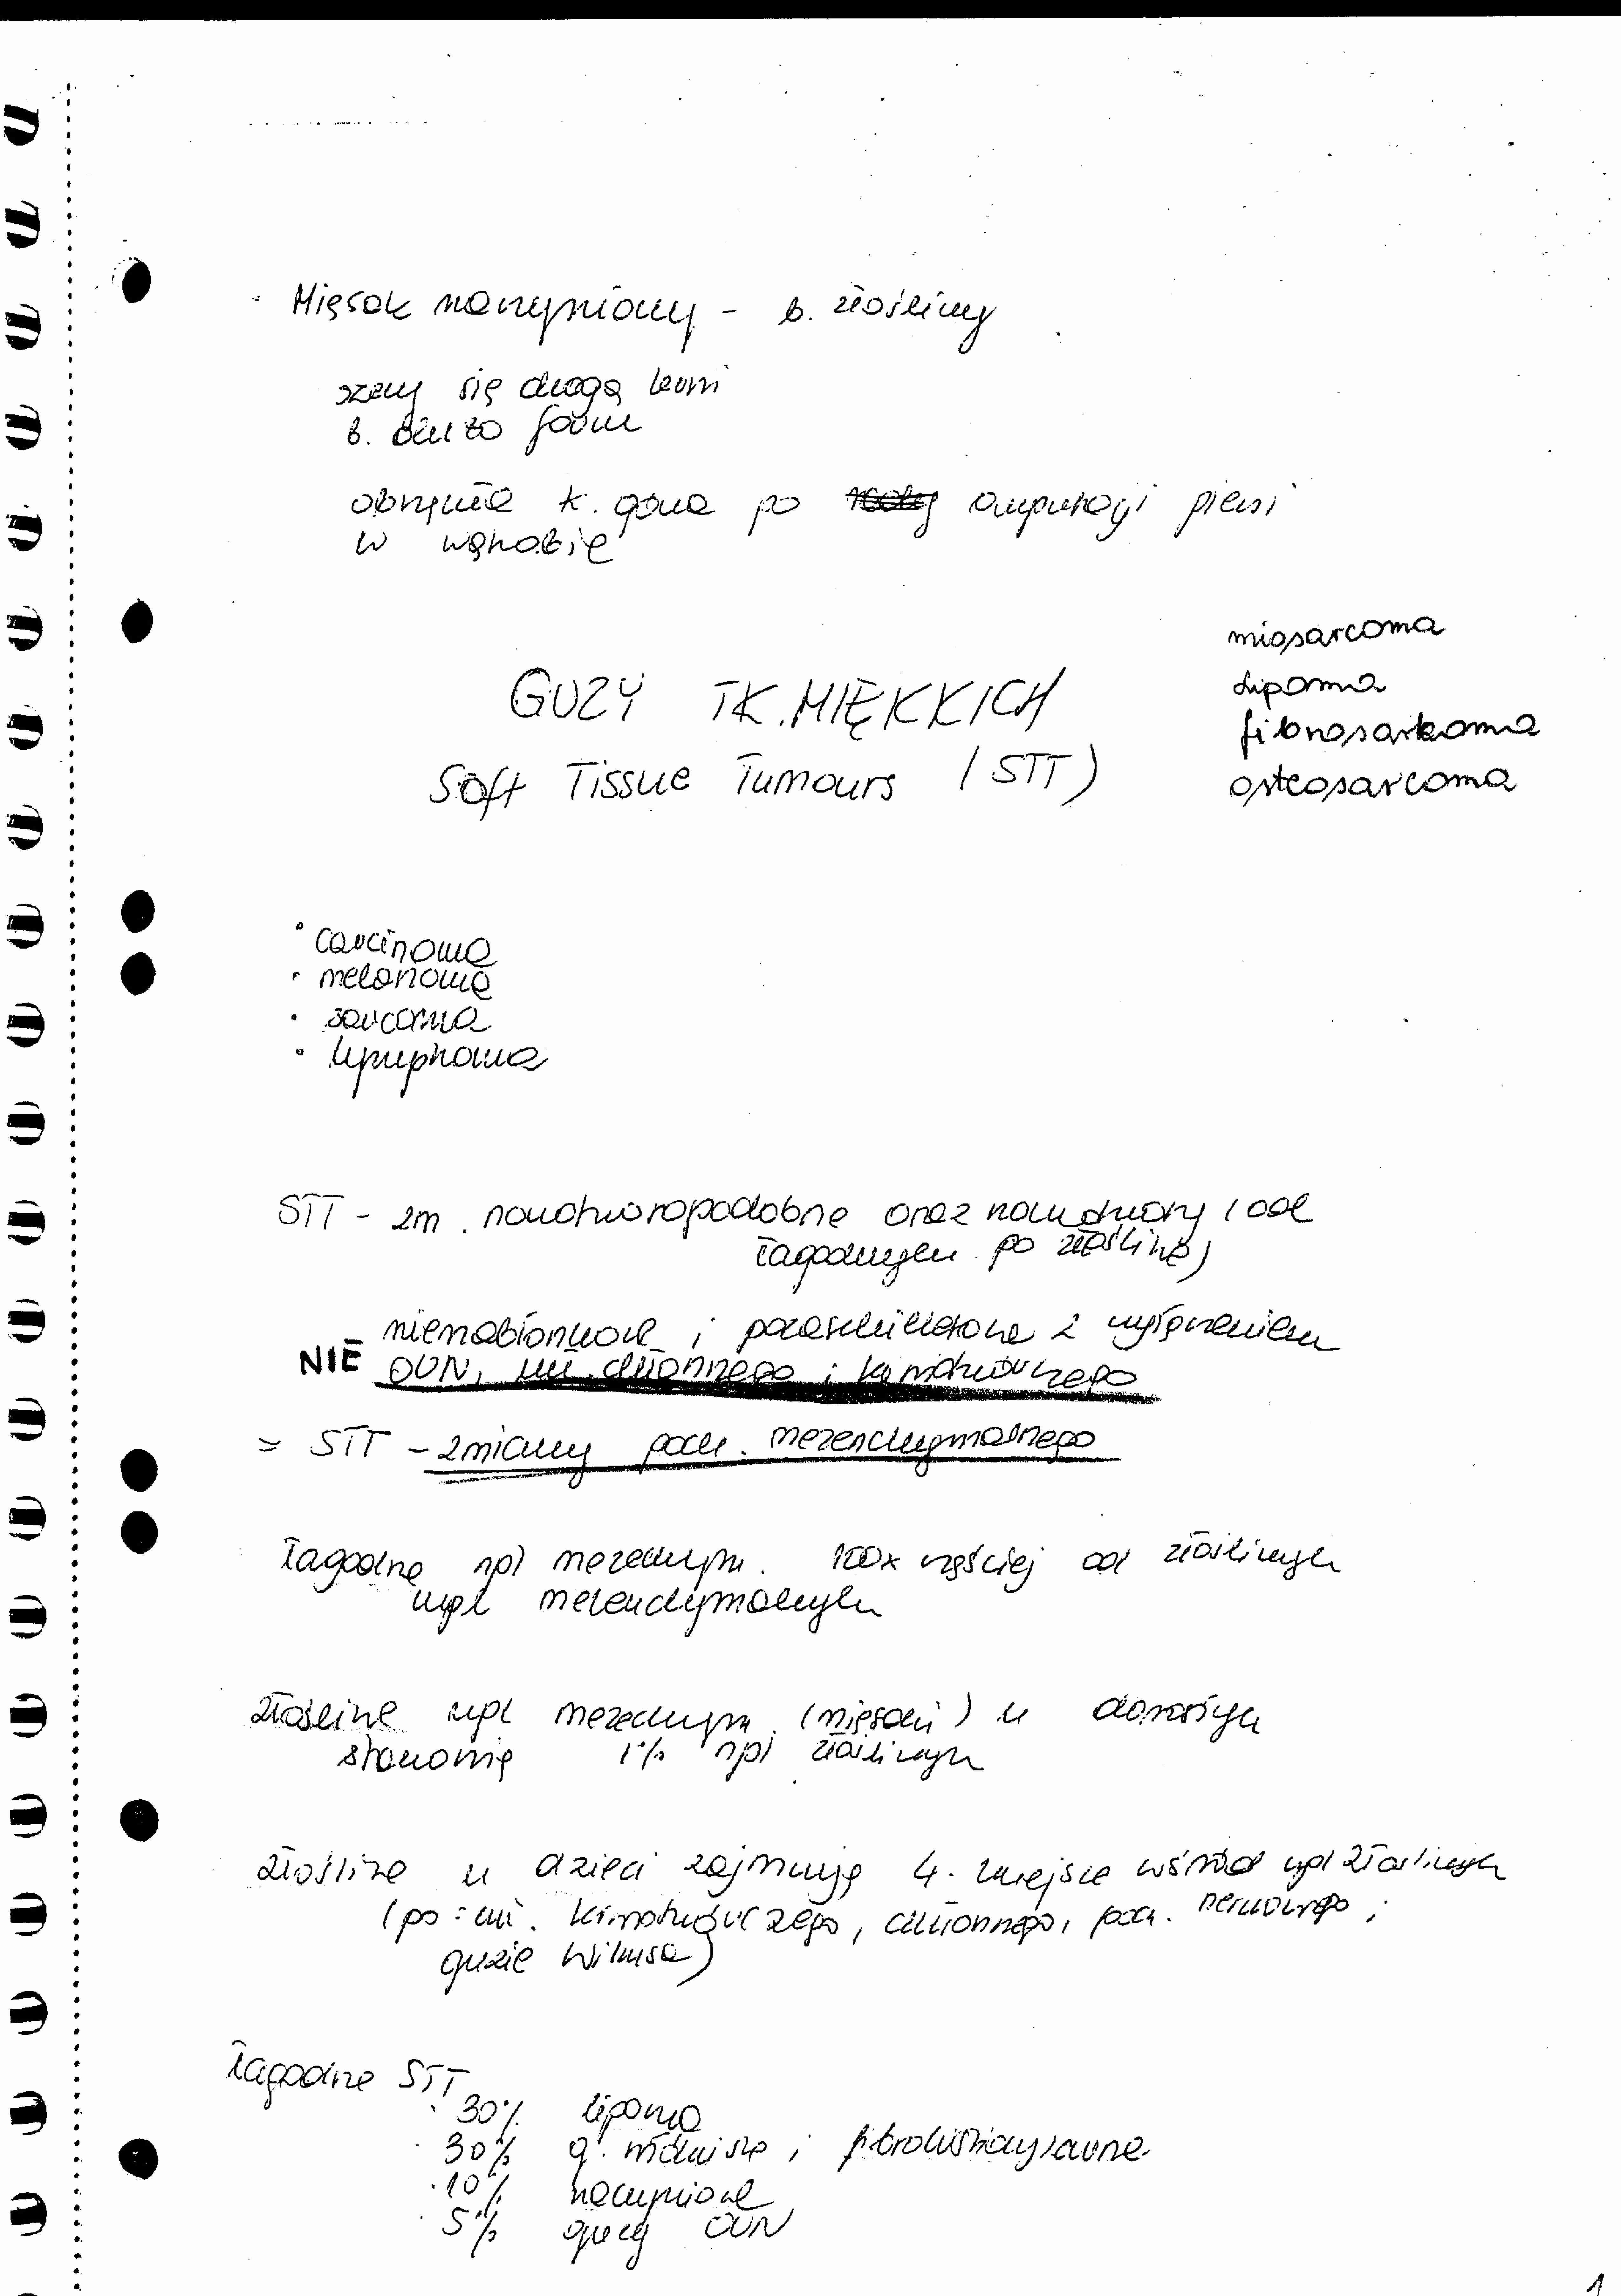 Mięsak naczyniowy - b. złośliwy
szerzy się drogą krwi
b. dużo form
obrzęknięta k. górna po amputacji piersi
w wątrobie
miosarcoma
GUZY TK. MIĘKKICH
lipoma
fibrosarkoma
Soft Tissue Tumours (STT)
osteosarcoma
• carcinoma
• melanoma
• sarcoma
• lymphoma
STT - zm. nowotworopodobne oraz nowotwory (od
łagodnych po złośliwe)
nienabłonkowe i pozaszkieletowe z wyłączeniem
NIE OUN, ukł. chłonnego i krwiotwórczego
= STT - zmiany poch. mezenchymalnego
łagodne npl mezenchym. 100x częściej od złośliwych
npl mezenchymalnych
złośliwe npl mezenchym. (mięsaki) u dorosłych
stanowią 1% npl złośliwych
złośliwe u dzieci zajmują 4. miejsce wśród npl złośliwych
(po: ukł. krwiotwórczego, chłonnego, poch. nerwowego i
guzie Wilmsa)
łagodne STT
• 30% lipoma
• 30% g. włókniste i fibrohistiocytarne
• 10% naczyniowe
• 5% OUN
1